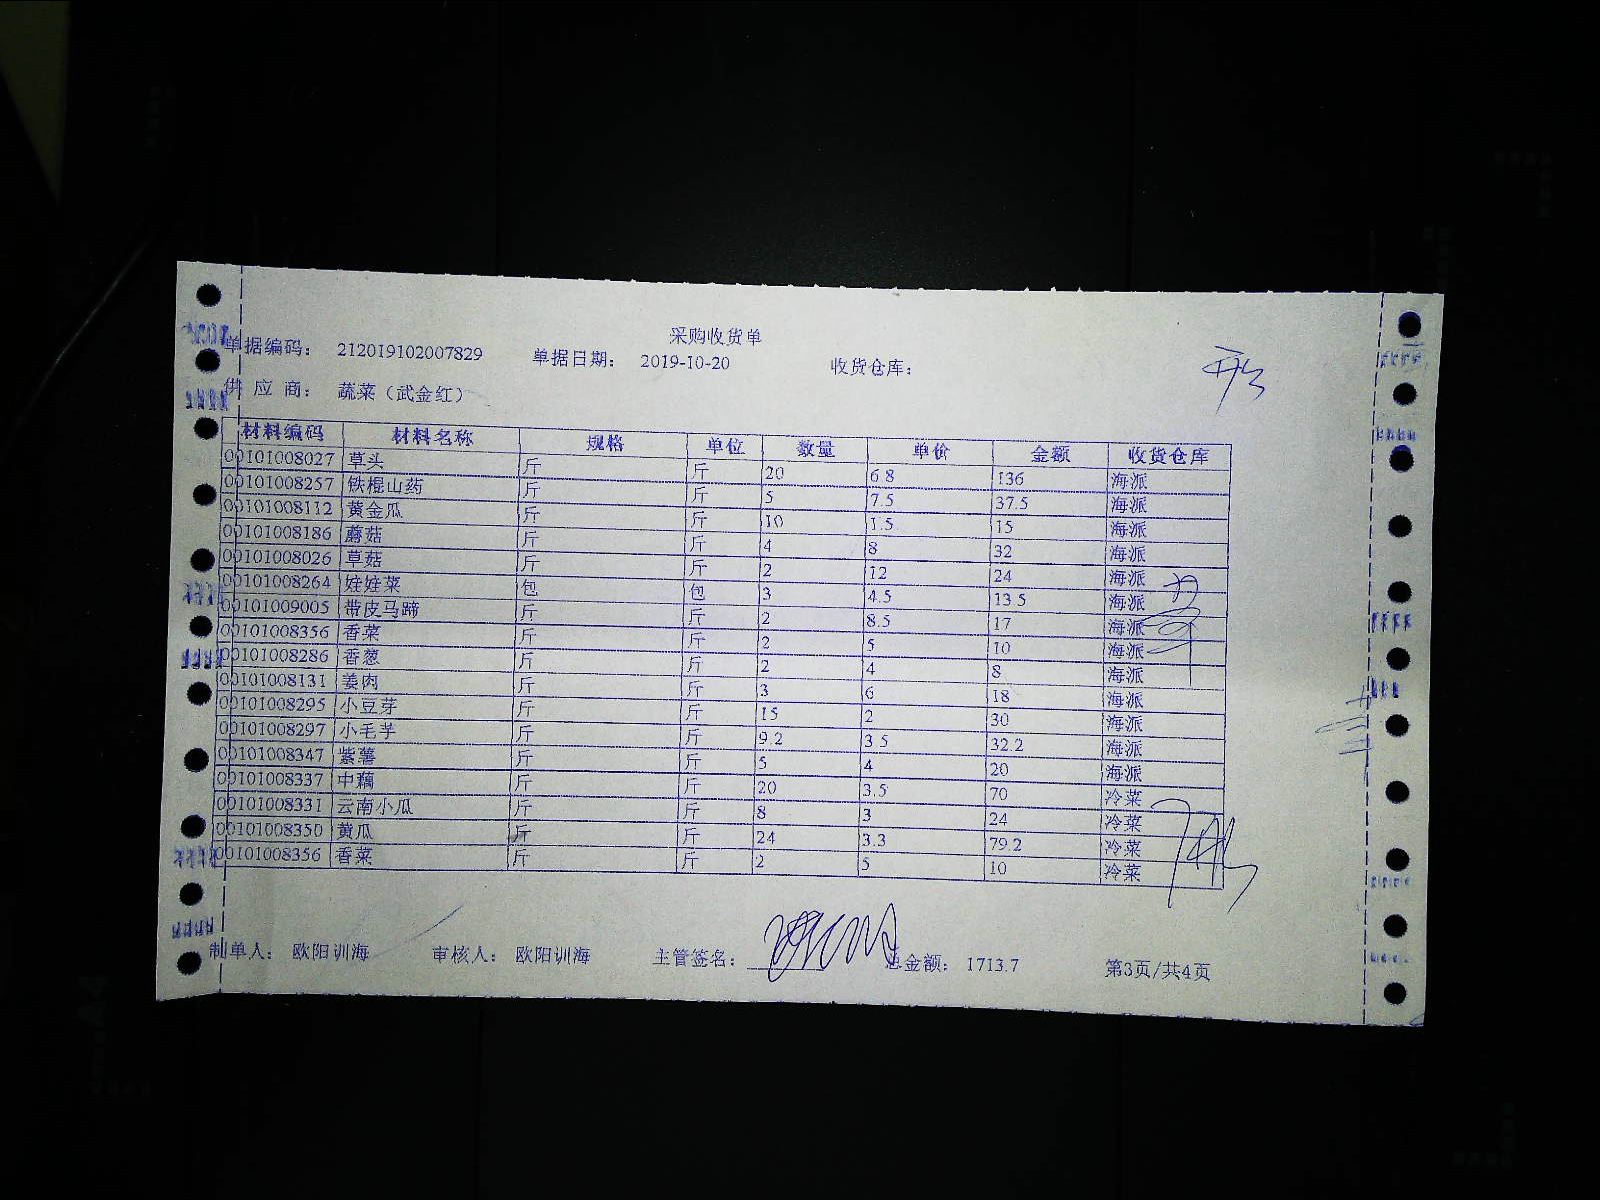 采购收货单
单据编码： 212019102007829 单据日期： 2019-10-20 收货仓库：
供 应 商： 蔬菜（武金红）
材料编码 材料名称 规格 单位 数量 单价 金额 收货仓库
00101008027 草头 斤 斤 20 6.8 136 海派
00101008257 铁棍山药 斤 斤 5 7.5 37.5 海派
00101008112 黄金瓜 斤 斤 10 1.5 15 海派
00101008186 蘑菇 斤 斤 4 8 32 海派
00101008026 草菇 斤 斤 2 12 24 海派
00101008264 娃娃菜 包 包 3 4.5 13.5 海派
00101009005 带皮马蹄 斤 斤 2 8.5 17 海派
00101008356 香菜 斤 斤 2 5 10 海派
00101008286 香葱 斤 斤 2 4 8 海派
00101008131 姜肉 斤 斤 3 6 18 海派
00101008295 小豆芽 斤 斤 15 2 30 海派
00101008297 小毛芋 斤 斤 9.2 3.5 32.2 海派
00101008347 紫薯 斤 斤 5 4 20 海派
00101008337 中藕 斤 斤 20 3.5 70 冷菜
00101008331 云南小瓜 斤 斤 8 3 24 冷菜
00101008350 黄瓜 斤 斤 24 3.3 79.2 冷菜
00101008356 香菜 斤 斤 2 5 10 冷菜
制单人： 欧阳训海 审核人： 欧阳训海 主管签名： 总金额： 1713.7 第3页/共4页